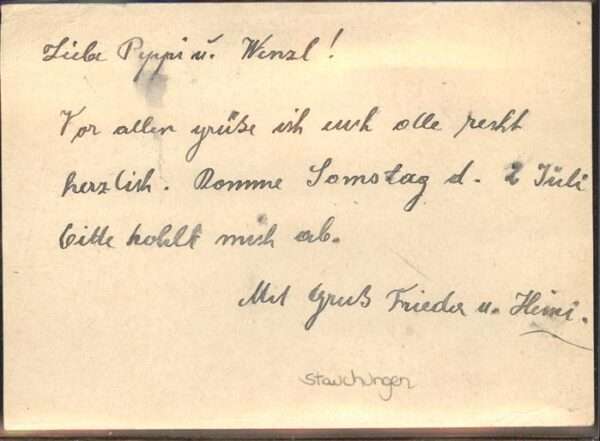 Liebe Peppi u. Wenzl!
Vor allen grüße ich euch alle recht
herzlich. Komme Samstag d. 2 Juli
bitte hohlt mich ab.
Mit Gruß Frieda u. Heini.
Stauchungen